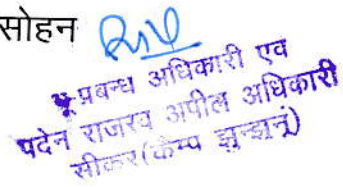 सोहन
भू प्रबन्ध अधिकारी एवं
पदेन राजस्व अपील अधिकारी
सीकर (कैम्प झुन्झुनूं)